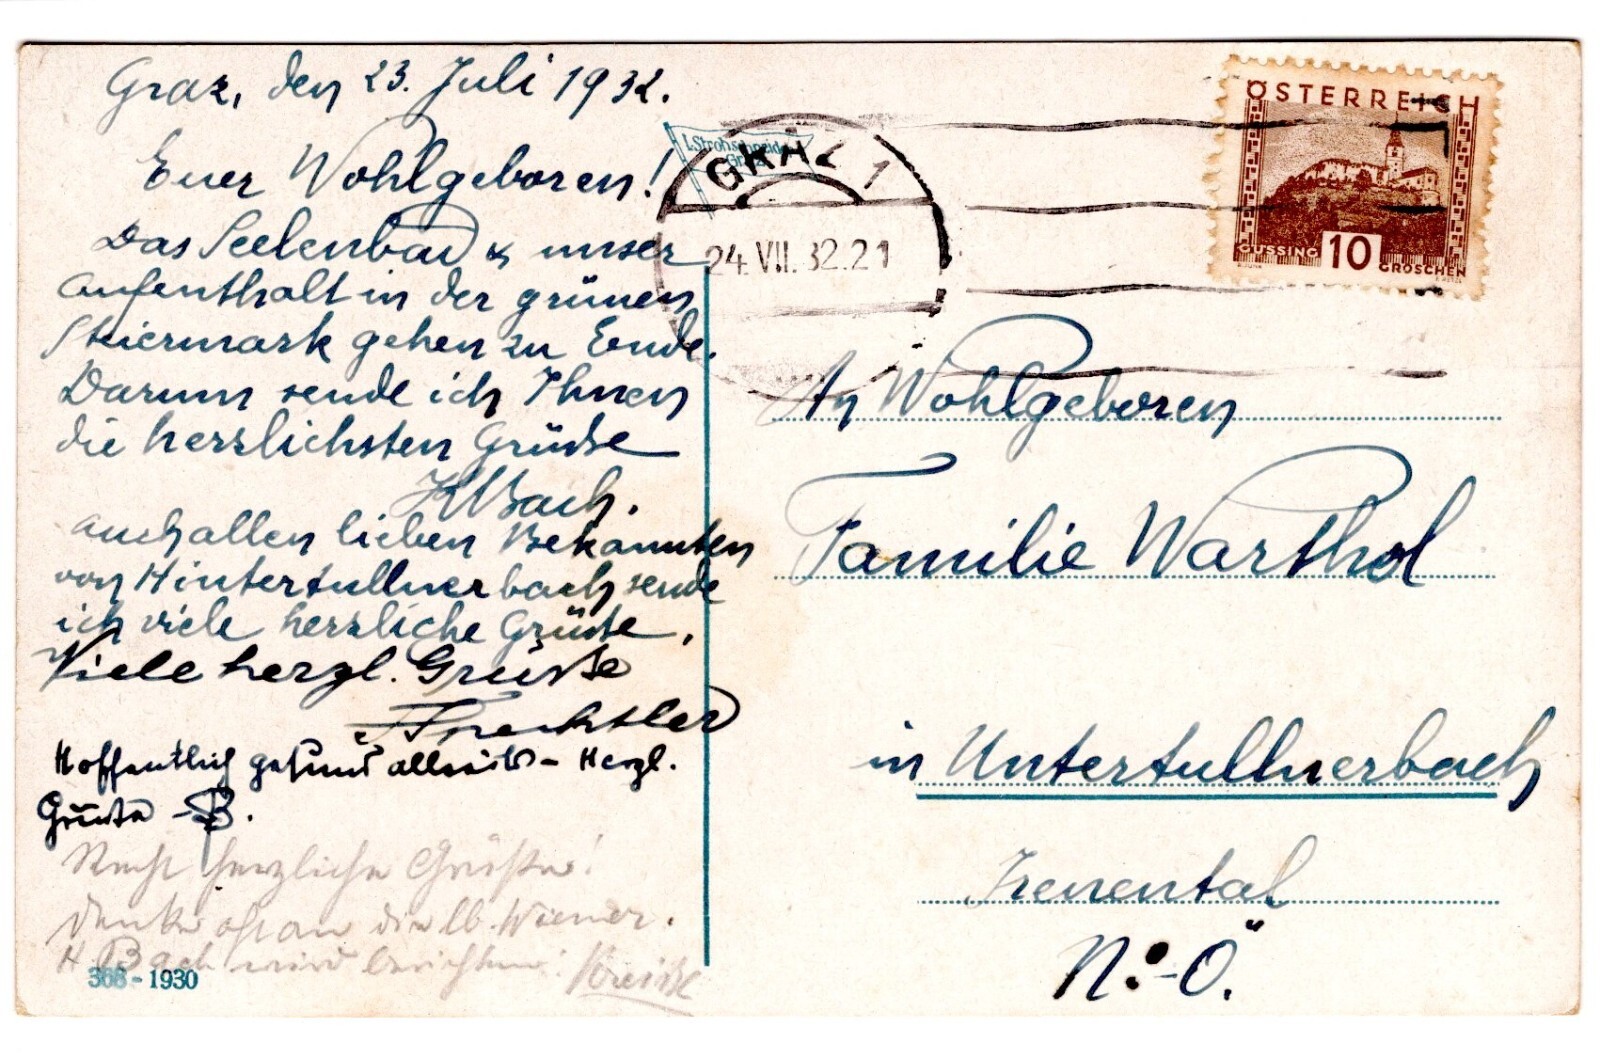 Graz, den 23. Juli 1932.
Euer Wohlgeboren!
Das Seelenbad & unser
Aufenthalt in der grünen
Steiermark gehen zu Ende.
Darum sende ich Ihnen
die herzlichsten Grüße
Bach.
auch allen lieben Bekannten
von Hintertullnerbach sende
ich viele herzliche Grüße.
Viele herzl. Grüße
Hoffentlich gesund allseits - Herzl.
Grüße - B.
Recht herzliche Grüße!
Denke oft an die lb. Wiener.
H. Bach wird berichten.
368 - 1930
I. Strohschneider
Graz
GRAZ 1
24. VII. 32. 21
ÖSTERREICH
GÜSSING 10 GROSCHEN
An Wohlgeboren
Familie Warthol
in Untertullnerbach
Irenental
N.-Ö.